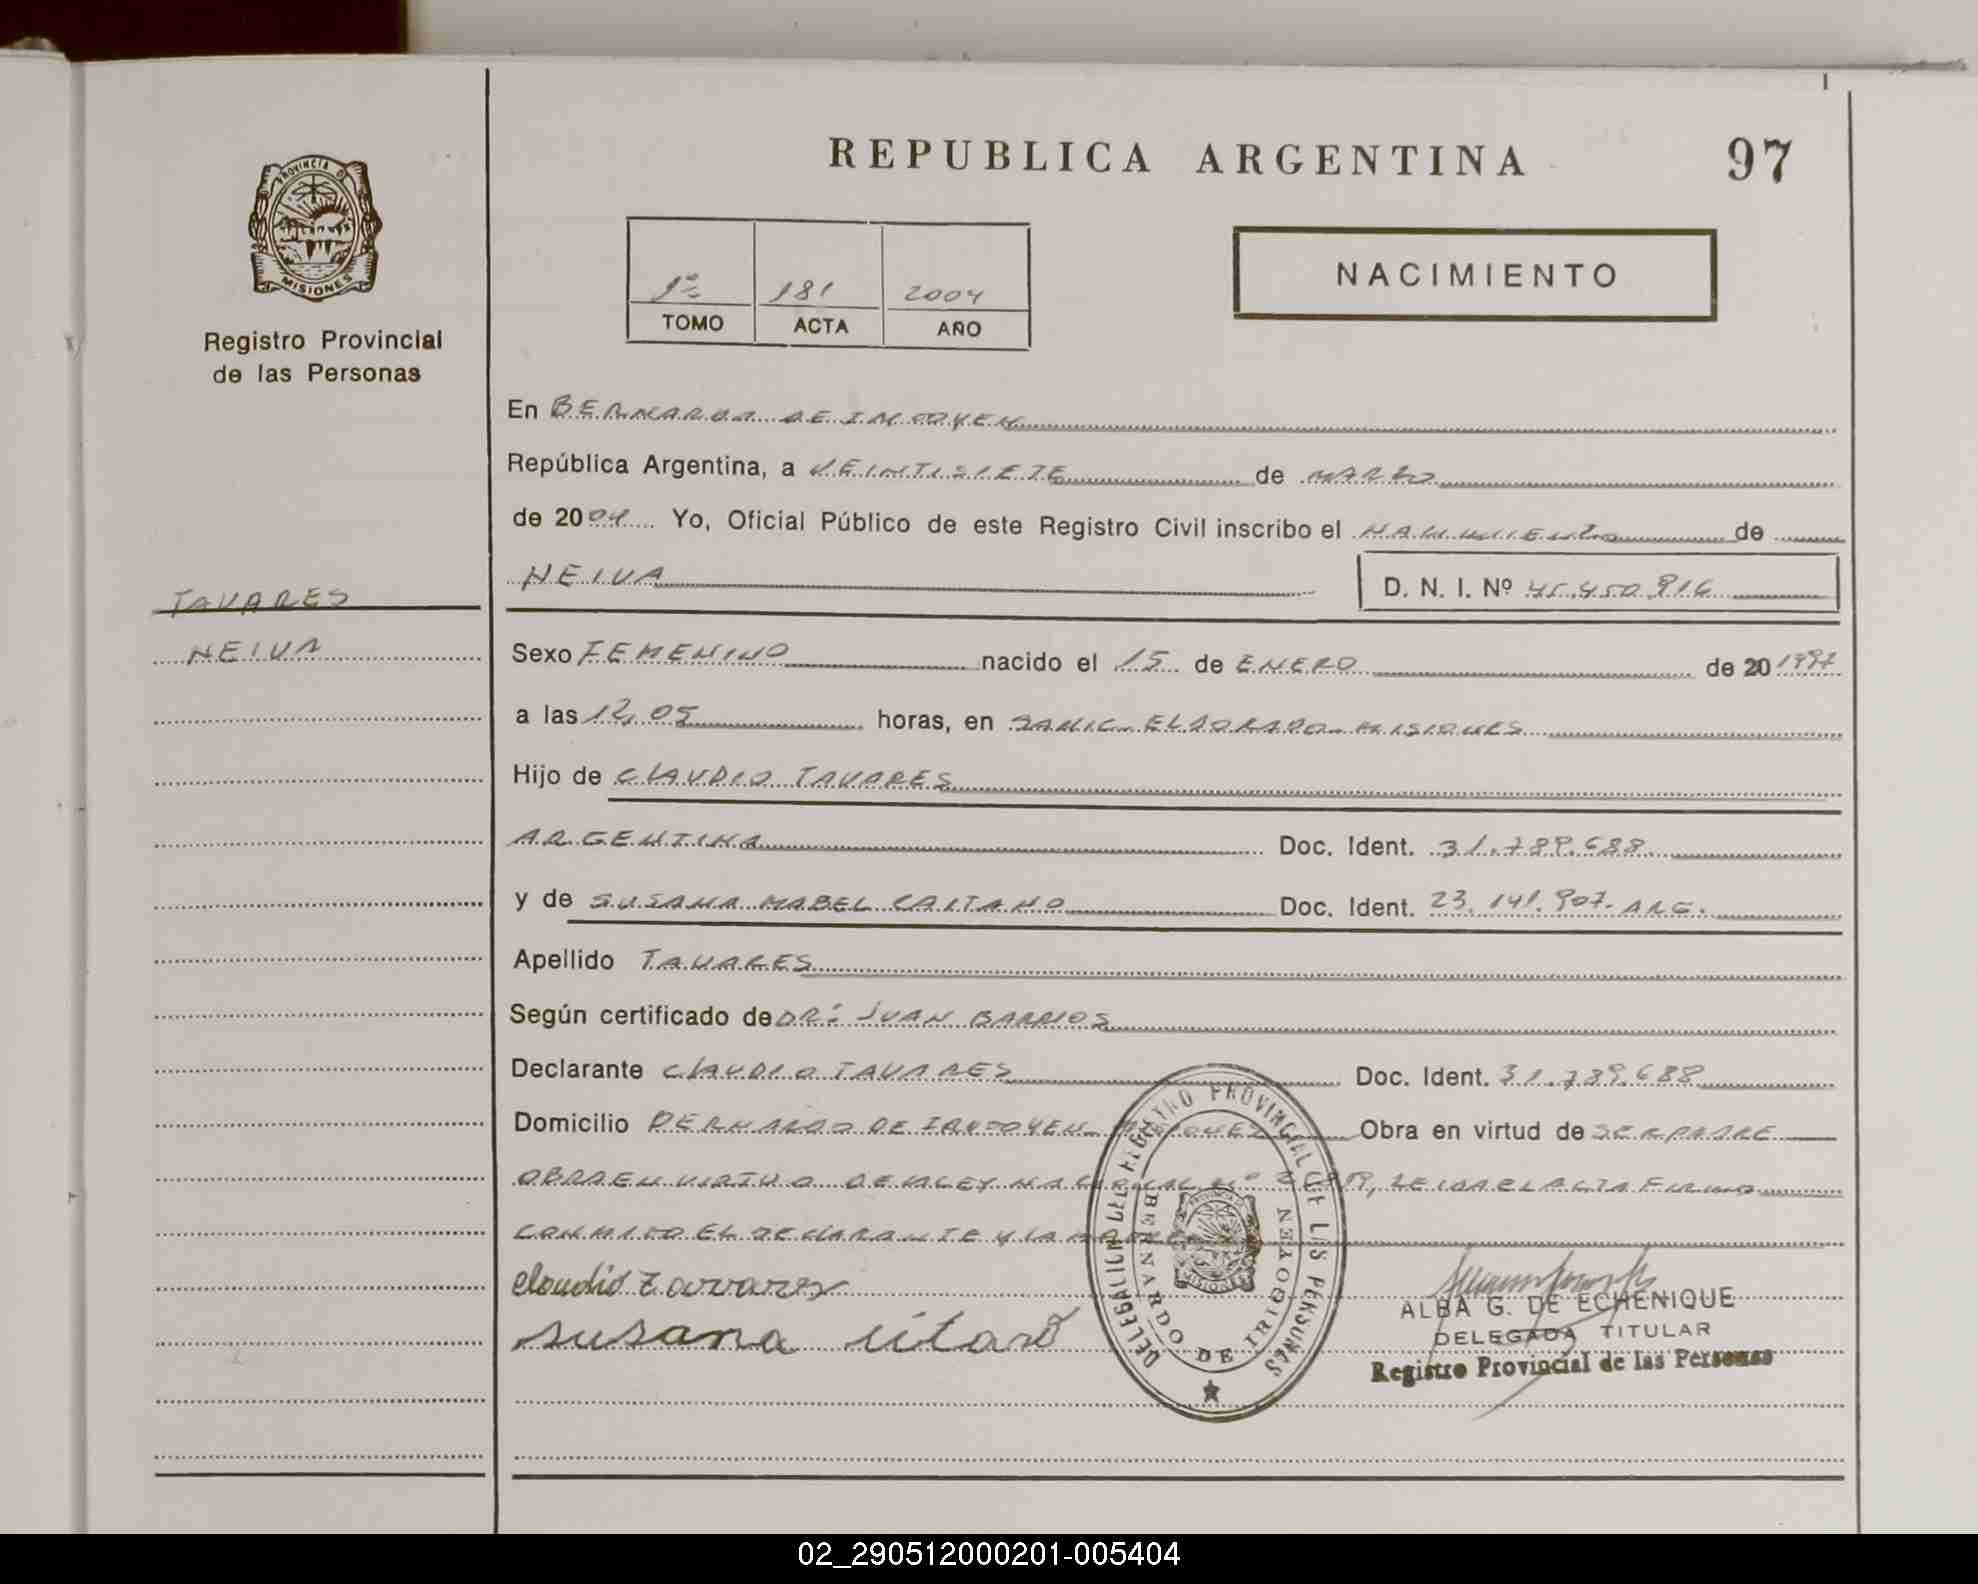 REPUBLICA ARGENTINA
97
PROVINCIA DE
MISIONES
Registro Provincial
de las Personas
1º 181 2004
TOMO ACTA AÑO
NACIMIENTO
En BERNARDO DE IRIGOYEN
República Argentina, a VEINTISIETE de MARZO
de 2004 Yo, Oficial Público de este Registro Civil inscribo el NACIMIENTO de
NEIVA
D. N. I. Nº 45.450.916
TAVARES
NEIVA
Sexo FEMENINO nacido el 15 de ENERO de 20 1997
a las 12,05 horas, en SAMIC ELDORADO MISIONES
Hijo de CLAUDIO TAVARES
ARGENTINA Doc. Ident. 31.789.688
y de SUSANA MABEL CAITANO Doc. Ident. 23.141.907. ARG.
Apellido TAVARES
Según certificado de DR: JUAN BARRIOS
Declarante CLAUDIO TAVARES Doc. Ident. 31.789.688
Domicilio BERNARDO DE IRIGOYEN MISIONES Obra en virtud de SER PADRE
OBRA EN VIRTUD DE LA LEY NACIONAL Nº LEIDA EL ACTA FIRMO
CONMIGO EL DECLARANTE Y LA MADRE
claudio Tavares
susana
DELEGACION DEL REGISTRO PROVINCIAL DE LAS PERSONAS
BERNARDO DE IRIGOYEN
ALBA G. DE ECHENIQUE
DELEGADA TITULAR
Registro Provincial de las Personas
02_290512000201-005404